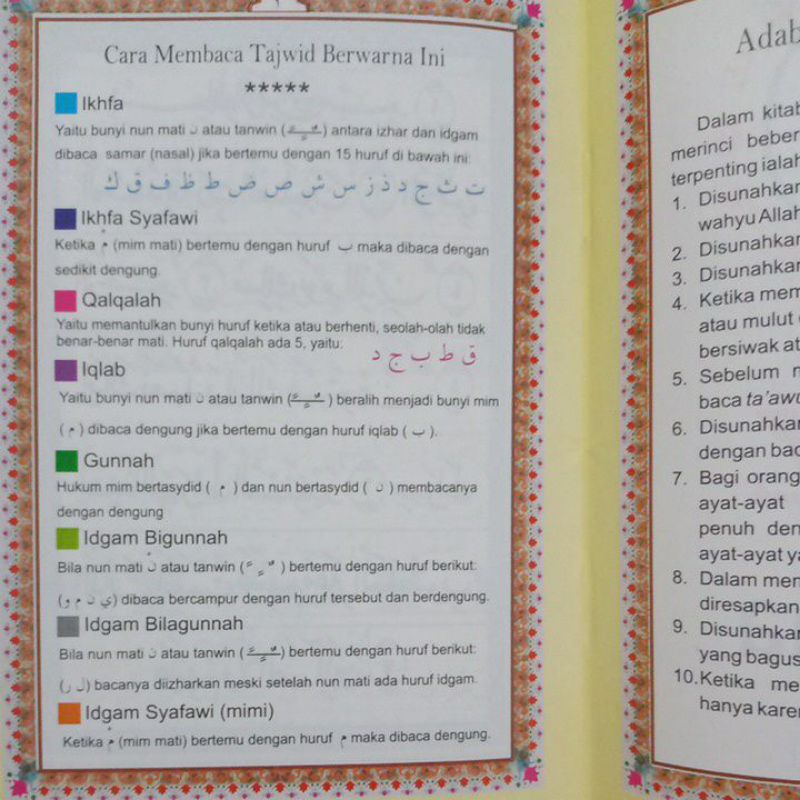 Cara Membaca Tajwid Berwarna Ini
*****
Ikhfa
Yaitu bunyi nun mati ن atau tanwin (ـًـٍـٌ) antara izhar dan idgam
dibaca samar (nasal) jika bertemu dengan 15 huruf di bawah ini:
ت ث ج د ذ ز س ش ص ض ط ظ ف ق ك
Ikhfa Syafawi
Ketika م (mim mati) bertemu dengan huruf ب maka dibaca dengan
sedikit dengung.
Qalqalah
Yaitu memantulkan bunyi huruf ketika atau berhenti, seolah-olah tidak
benar-benar mati. Huruf qalqalah ada 5, yaitu:
ق ط ب ج د
Iqlab
Yaitu bunyi nun mati ن atau tanwin (ـًـٍـٌ) beralih menjadi bunyi mim
(م) dibaca dengung jika bertemu dengan huruf iqlab (ب).
Gunnah
Hukum mim bertasydid ( م ) dan nun bertasydid ( ن ) membacanya
dengan dengung
Idgam Bigunnah
Bila nun mati ن atau tanwin (ـًـٍـٌ) bertemu dengan huruf berikut:
(ي ن م و) dibaca bercampur dengan huruf tersebut dan berdengung.
Idgam Bilagunnah
Bila nun mati ن atau tanwin (ـًـٍـٌ) bertemu dengan huruf berikut:
(ل ر) bacanya diizharkan meski setelah nun mati ada huruf idgam.
Idgam Syafawi (mimi)
Ketika م (mim mati) bertemu dengan huruf م maka dibaca dengung.
Adab
Dalam kitab
merinci beber
terpenting ialah
1. Disunahkan
wahyu Allah
2. Disunahkan
3. Disunahkan
4. Ketika mem
atau mulut
bersiwak at
5. Sebelum
baca ta'awu
6. Disunahkan
dengan bac
7. Bagi orang
ayat-ayat
penuh den
ayat-ayat ya
8. Dalam mem
diresapkan
9. Disunahkan
yang bagus
10. Ketika me
hanya karen